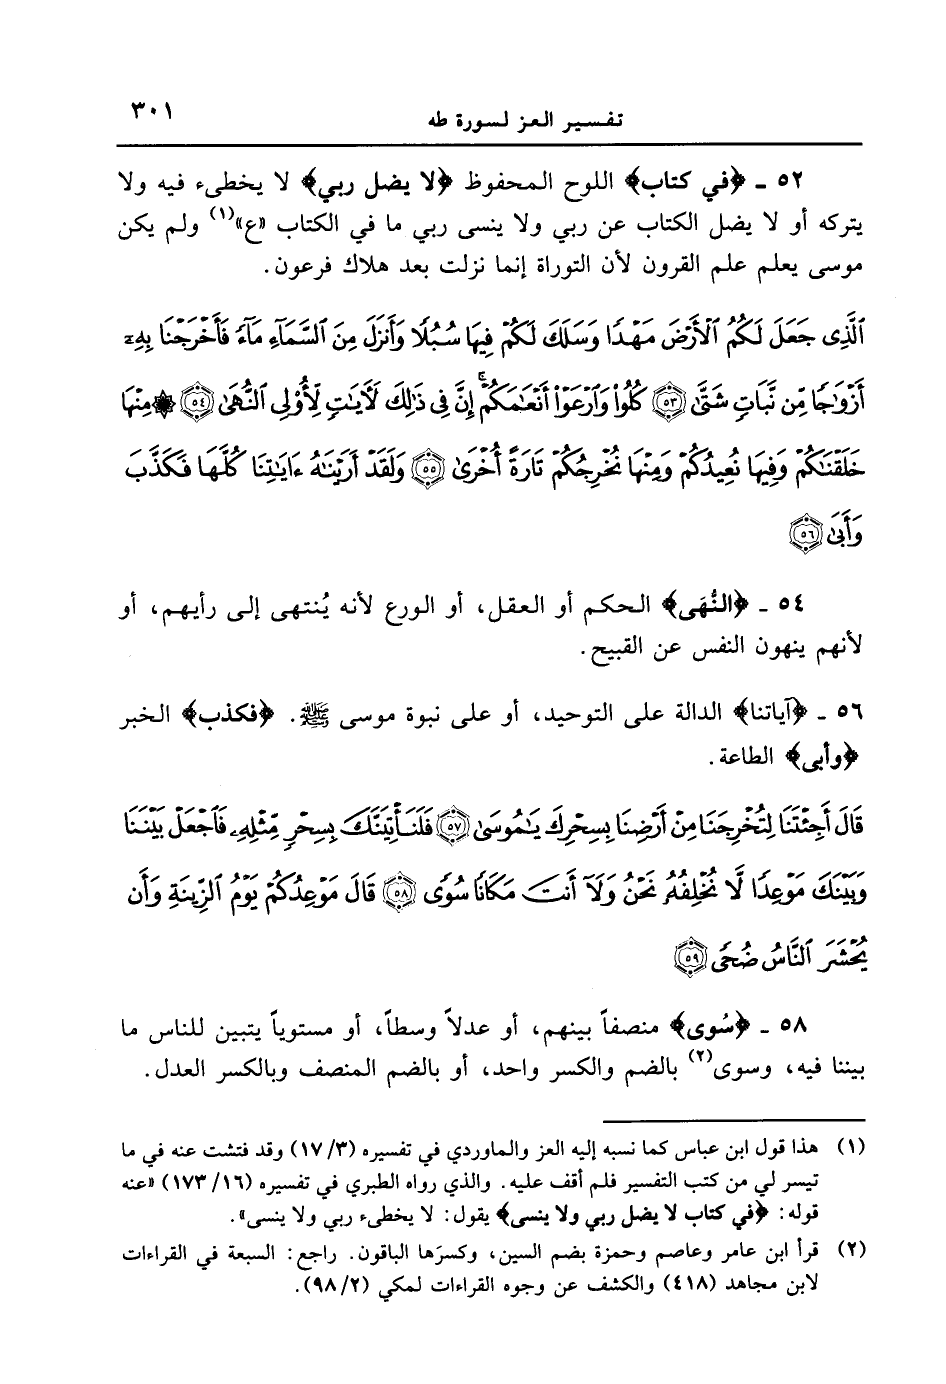 تفسير العز لسورة طه ٣٠١
٥٢ ـ ﴿في كتاب﴾ اللوح المحفوظ ﴿لا يضل ربي﴾ لا يخطىء فيه ولا
يتركه أو لا يضل الكتاب عن ربي ولا ينسى ربي ما في الكتاب «ع»(١) ولم يكن
موسى يعلم علم القرون لأن التوراة إنما نزلت بعد هلاك فرعون.
ٱلَّذِى جَعَلَ لَكُمُ ٱلْأَرْضَ مَهْدًا وَسَلَكَ لَكُمْ فِيهَا سُبُلًا وَأَنزَلَ مِنَ ٱلسَّمَآءِ مَآءً فَأَخْرَجْنَا بِهِۦٓ
أَزْوَٰجًا مِّن نَّبَاتٍ شَتَّىٰ ٥٣ كُلُوا۟ وَٱرْعَوْا۟ أَنْعَٰمَكُمْ ۗ إِنَّ فِى ذَٰلِكَ لَءَايَٰتٍ لِّأُو۟لِى ٱلنُّهَىٰ ٥٤ ۞ مِنْهَا
خَلَقْنَٰكُمْ وَفِيهَا نُعِيدُكُمْ وَمِنْهَا نُخْرِجُكُمْ تَارَةً أُخْرَىٰ ٥٥ وَلَقَدْ أَرَيْنَٰهُ ءَايَٰتِنَا كُلَّهَا فَكَذَّبَ
وَأَبَىٰ ٥٦
٥٤ ـ ﴿النُّهَى﴾ الحكم أو العقل، أو الورع لأنه يُنتهى إلى رأيهم، أو
لأنهم ينهون النفس عن القبيح.
٥٦ ـ ﴿آياتنا﴾ الدالة على التوحيد، أو على نبوة موسى ﷺ. ﴿فكذب﴾ الخبر
﴿وأبى﴾ الطاعة.
قَالَ أَجِئْتَنَا لِتُخْرِجَنَا مِنْ أَرْضِنَا بِسِحْرِكَ يَٰمُوسَىٰ ٥٧ فَلَنَأْتِيَنَّكَ بِسِحْرٍ مِّثْلِهِۦ فَٱجْعَلْ بَيْنَنَا
وَبَيْنَكَ مَوْعِدًا لَّا نُخْلِفُهُۥ نَحْنُ وَلَآ أَنتَ مَكَانًا سُوًى ٥٨ قَالَ مَوْعِدُكُمْ يَوْمُ ٱلزِّينَةِ وَأَن
يُحْشَرَ ٱلنَّاسُ ضُحًى ٥٩
٥٨ ـ ﴿سُوى﴾ منصفاً بينهم، أو عدلاً وسطاً، أو مستوياً يتبين للناس ما
بيننا فيه، وسوى(٢) بالضم والكسر واحد، أو بالضم المنصف وبالكسر العدل.
(١) هذا قول ابن عباس كما نسبه إليه العز والماوردي في تفسيره (١٧/٣) وقد فتشت عنه في ما
تيسر لي من كتب التفسير فلم أقف عليه. والذي رواه الطبري في تفسيره (١٧٣/١٦) «عنه
قوله: ﴿في كتاب لا يضل ربي ولا ينسى﴾ يقول: لا يخطىء ربي ولا ينسى».
(٢) قرأ ابن عامر وعاصم وحمزة بضم السين، وكسرَها الباقون. راجع: السبعة في القراءات
لابن مجاهد (٤١٨) والكشف عن وجوه القراءات لمكي (٩٨/٢).